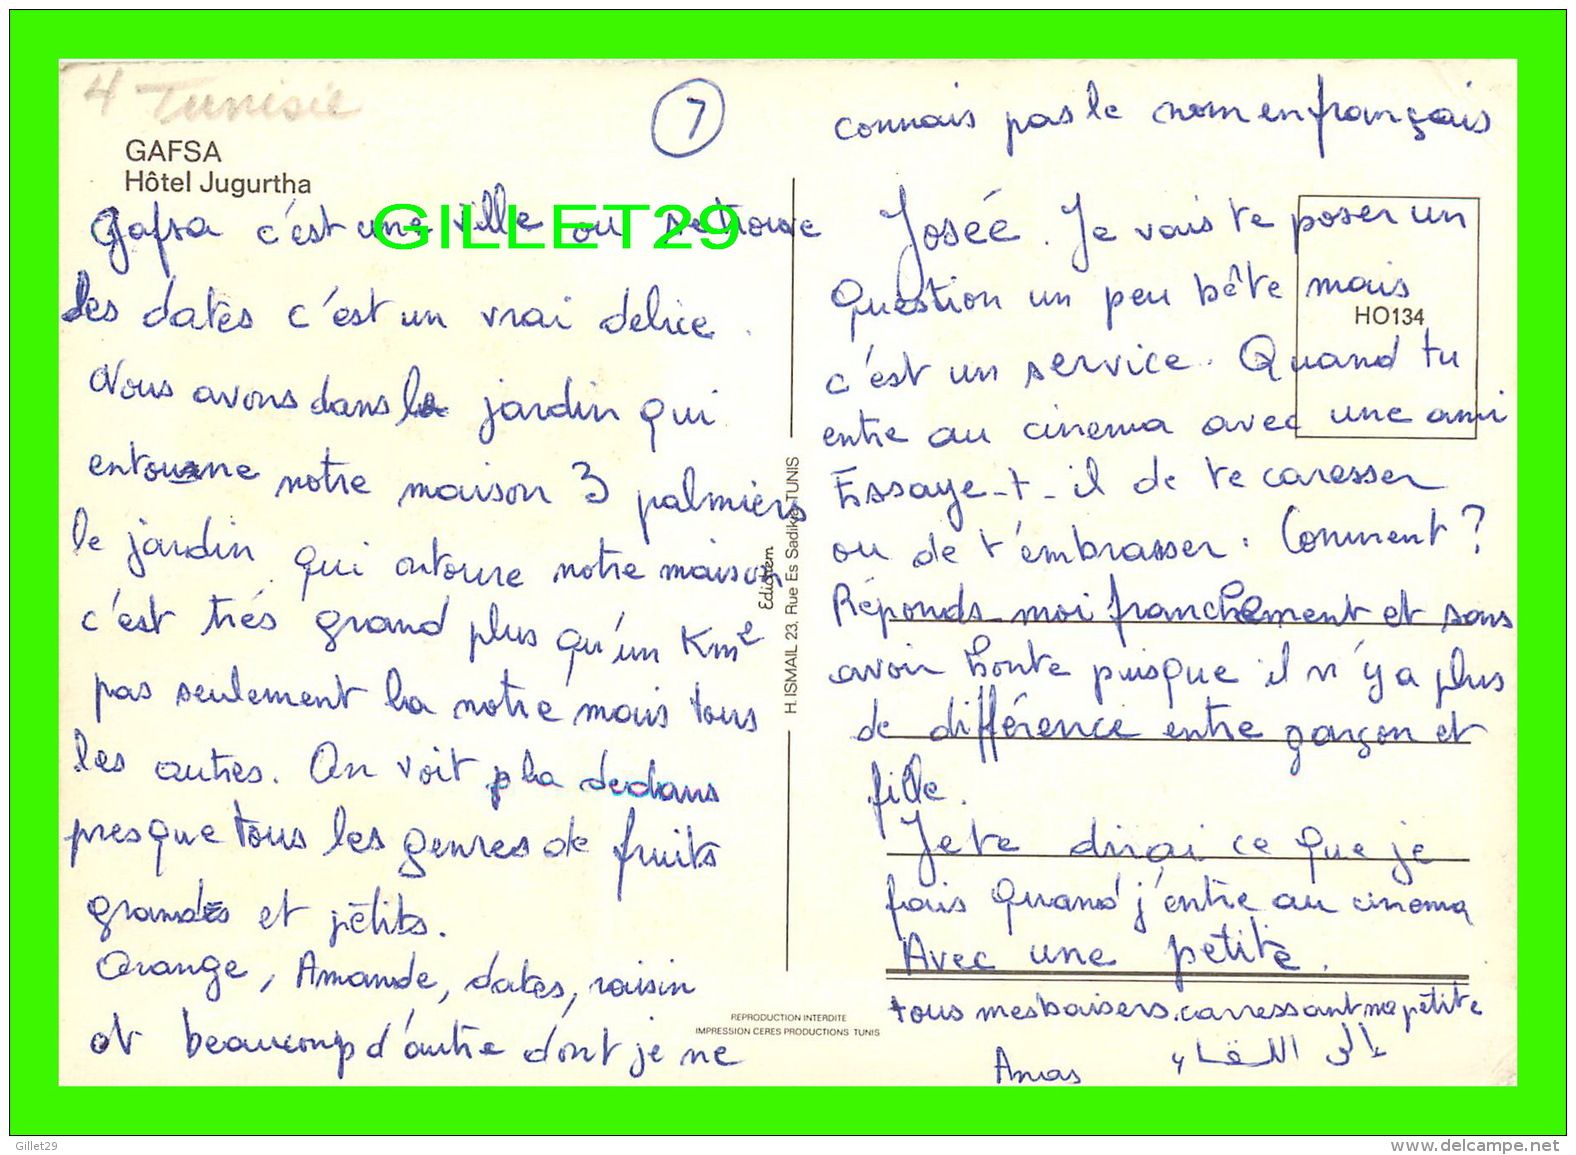 4 Tunisie
GAFSA
Hôtel Jugurtha
7
GILLET29
Gafsa c'est une ville ou se trouve
les dates c'est un vrai delice.
Nous avons dans le jardin qui
entourne notre maison 3 palmiers
le jardin qui entoure notre maison
c'est trés grand plus qu'un Km²
pas seulement la notre mais tous
les autres. On voit la dedans
presque tous les genres de fruits
grandes et pétits.
Orange, Amande, dates, raisin
et beaucoup d'autre dont je ne
H. ISMAIL 23, Rue Es Sadikia TUNIS
REPRODUCTION INTERDITE
IMPRESSION CERES PRODUCTIONS TUNIS
connais pas le nom en français
Josée. Je vais te poser un
Question un peu bête mais
HO134
c'est un service. Quand tu
entre au cinema avec une ami
Essaye-t-il de te caresser
ou de t'embrasser. Comment?
Réponds-moi franchement et sans
avoir honte puisque il n'y a plus
de différence entre garçon et
fille.
Je te dirai ce que je
fais quand j'entre au cinema
Avec une petite.
tous mes baisers. carressant ma pétite
Anas إلى اللقاء
Gillet29
www.delcampe.net